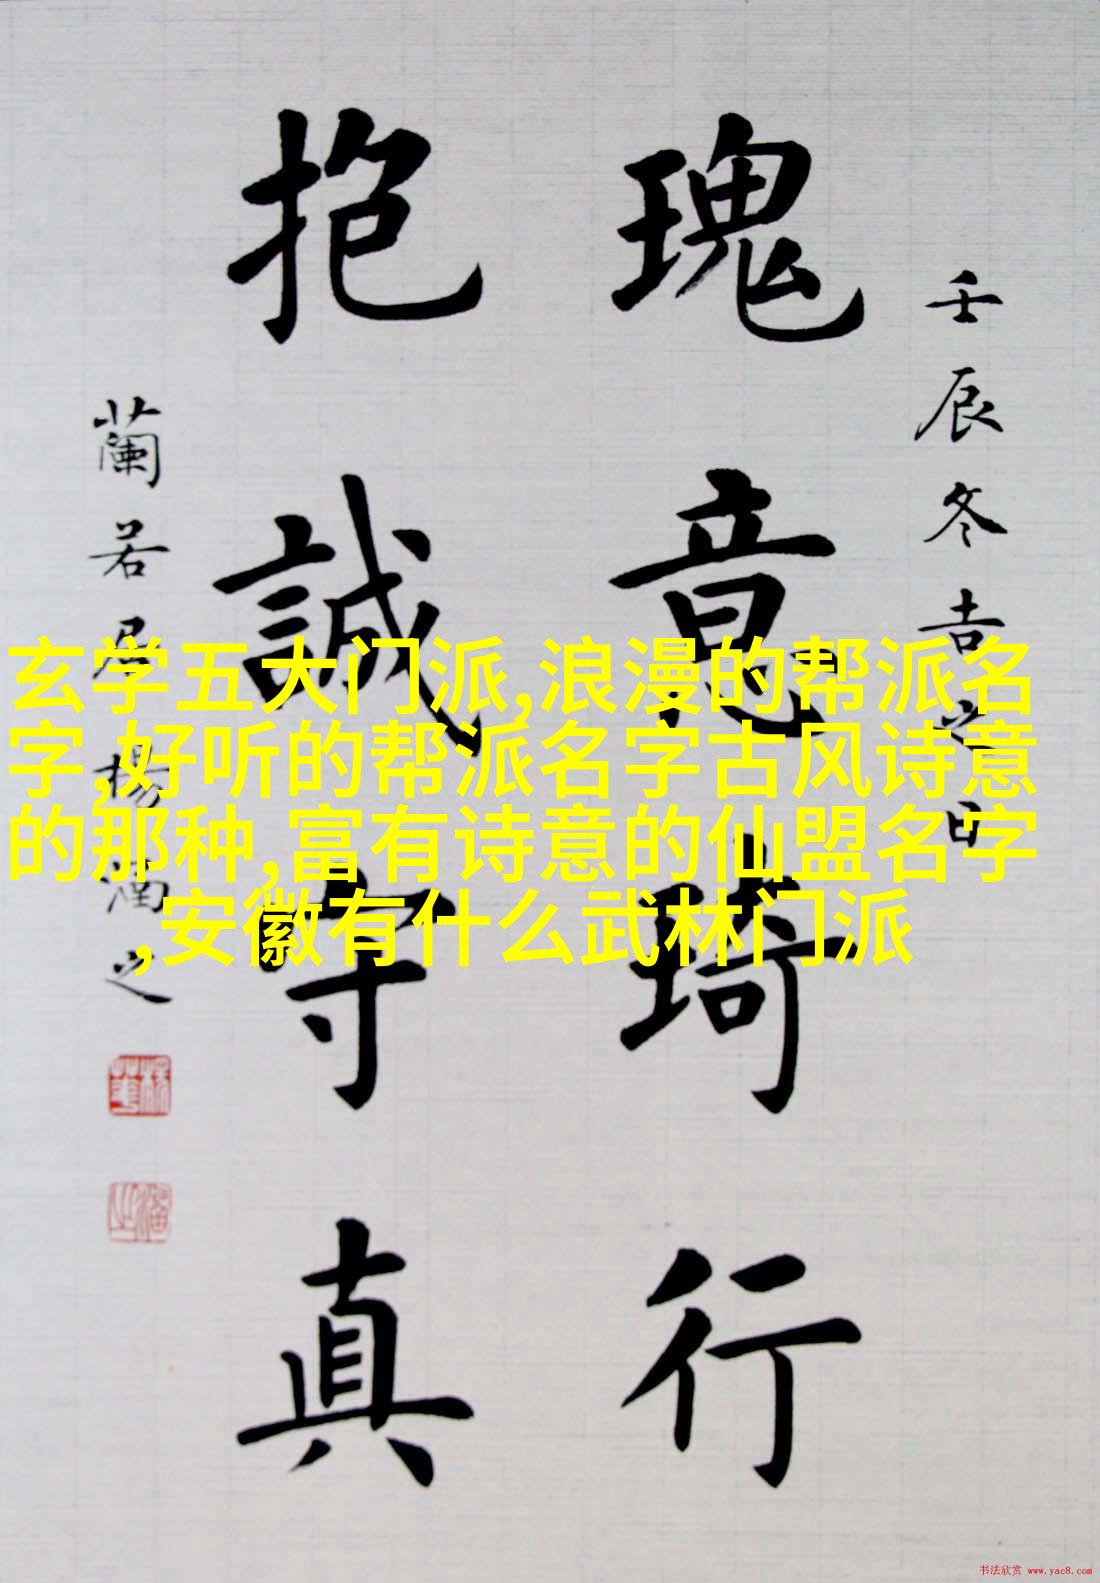 壬辰冬吉之日
瑰意琦行
抱誠守真
蘭若居楊之
玄学五大门派,浪漫的帮派名
字,好听的帮派名字古风诗意
的那种,富有诗意的仙盟名字
,安徽有什么武林门派
书法欣赏 www.yac8.com